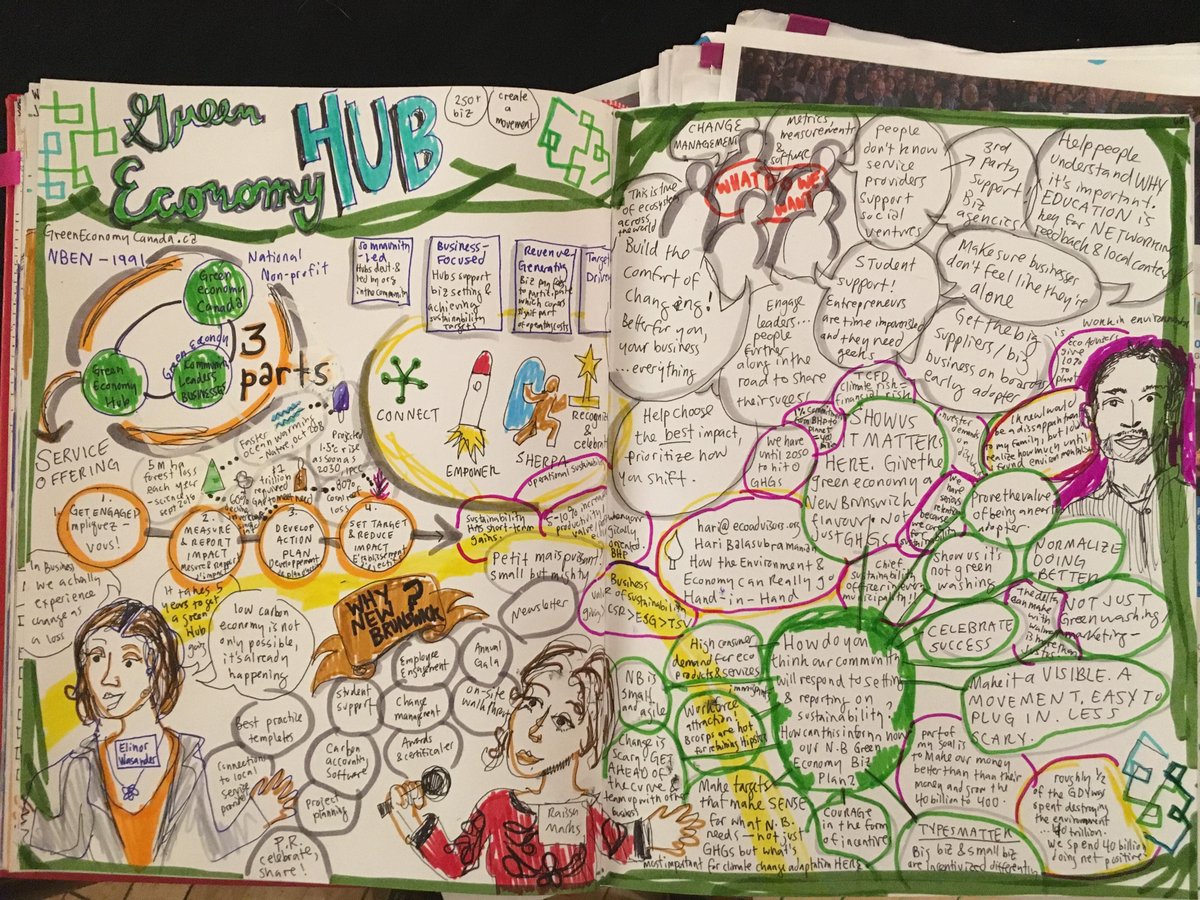 Green
Economy
HUB
250+
biz
create
a
movement
GreenEconomyCanada.ca
NBEN - 1991
National
Non-profit
Green
economy
Canada
Green
Economy
Hub
Green Economy
Leaders
BUSINESSES
3
parts
Community
-Led
in the community
Business-
Focused
Hubs support
biz setting &
achieving
sustainability
targets
Revenue
Generating
Biz pay fees
to participate
Target
Driven
CONNECT
EMPOWER
SHERPA
Recognize
&
celebrate
SERVICE
OFFERING
5 m ha
forest loss
each year
Faster
ocean warming
1.5°C rise
as soon as
2030, IPCC
trillion
required
80%
coral
1.
GET ENGAGED
impliquez-
vous!
2.
MEASURE
& REPORT
IMPACT
3.
DEVELOP
ACTION
PLAN
4.
SET TARGET
& REDUCE
IMPACT
operational sustainability
sustainability
HAS short-term
gains.
Petit mais puissant
small but mighty
In Business
we actually
experience
change as
a loss
It takes 5
years to get
a Green
Hub
going
low carbon
economy is not
only possible,
it's already
happening
WHY
NEW
BRUNSWICK
?
Newsletter
Employee
Engagement
Annual
Gala
Student
support
Change
management
on-site
walkthrus
Best practice
templates
Carbon
accounting
Software
Awards
& certificates
Connections
to local
service
providers
Project
planning
P.R.
celebrate,
share!
Elinor
Raissa
Marks
CHANGE
MANAGEMENT
metrics,
measurements
&
software
WHAT DO WE
WANT
People
don't know
service
providers
support
social
ventures
3rd
Party
Support
biz
agencies
Help people
Understand WHY
it's important.
EDUCATION is
key for NETWORKING
feedback & local context
This is true
of ecosystems
across
the world
Build the
comfort of
changing!
Better for you,
your business
...everything
Engage
leaders...
people
further
along in the
road to share
their success
STudent
support!
Entrepreneurs
are time impoverished
and they need
geeks
Make sure businesses
don't feel like they're
alone
Get the big
suppliers/big
business on board
early adopter
Help choose
the best impact,
prioritize how
you shift.
TCFD
Climate risk =
financial risk
we have
until 2050
to hit 0
GHGs
SHOW US
IT MATTERS
HERE. Give the
green economy a
New Brunswick
flavour. not
just GHGs
I knew I would
be a disappointment
to my family, but
Prove the value
of being an early
adopter.
hari@ecoadvisors.org
Hari Balasubramanian
How the Environment &
Economy can Really go
Hand-in-Hand
chief
sustainability
officer in your
municipality!!
show us it's
not green
washings
NORMALIZE
DOING
BETTER
NOT JUST
Greenwashing
marketing-
CELEBRATE
SUCCESS
Make it a VISIBLE. A
MOVEMENT, EASY TO
PLUG IN. LESS
SCARY.
Business
of sustainability
High consumer
demand for eco
products & services
NB is
small
and agile
Workforce
attraction!
immigrants
How do you
think our community
will respond to setting
& reporting on
sustainability?
How can this inform how
our N.B Green
Economy Biz
Plan?
Change is
scary GET
AHEAD OF
the curve &
team up with other
business
Make targets
that make SENSE
for what N.B.
needs — not just
GHGs but what's
most important for climate change adaptation HERE
COURAGE
in the form
of incentives
part of
my goal is
to Make our money
better than their
money and grow the
40 billion to 400.
TYPES MATTER
Big biz & small biz
are incentivized differently
roughly 1/2
of the GDP was
spent destroying
the environment
...40 trillion.
we spend 40 billion
doing net positive